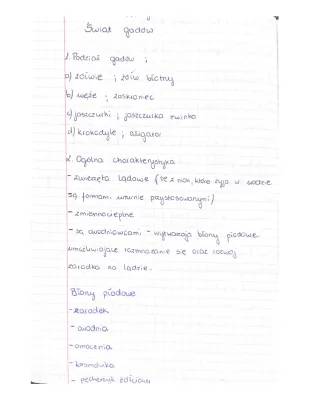 Świat gadów
1. Podział gadów:
a) żółwie; żółw błotny
b) węże; zaskroniec
c) jaszczurki; jaszczurka zwinka
d) krokodyle; aligator
2. Ogólna charakterystyka
- zwierzęta lądowe (te z nich, które żyją w wodzie
są formami wtórnie przystosowanymi)
- zmiennocieplne
- są owodniowcami - wytwarzają błony płodowe
umożliwiające rozmnażanie się oraz rozwój
zarodka na lądzie.
Błony płodowe
- zarodek
- owodnia
- omocznia
- kosmówka
- pęcherzyk żółtkowy